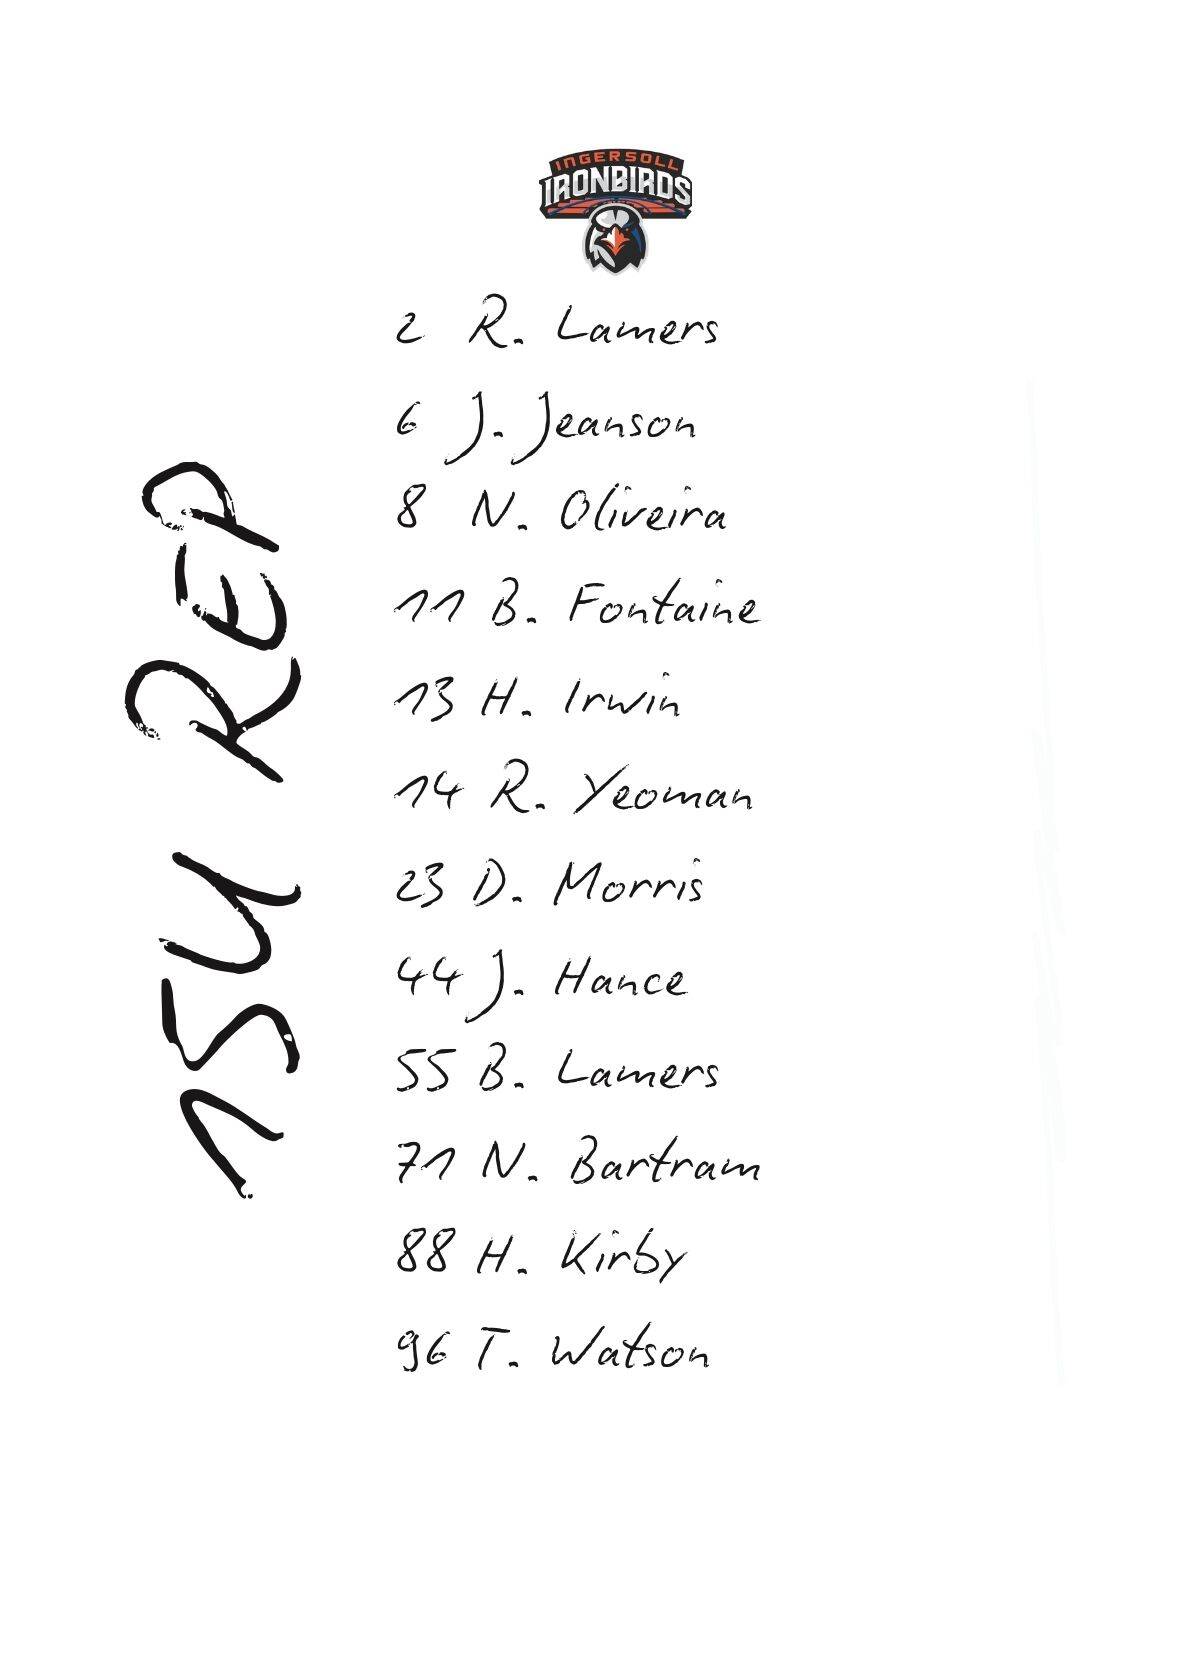 INGERSOLL
IRONBIRDS
15U REP
2 R. Lamers
6 J. Jeanson
8 N. Oliveira
11 B. Fontaine
13 H. Irwin
14 R. Yeoman
23 D. Morris
44 J. Hance
55 B. Lamers
71 N. Bartram
88 H. Kirby
96 T. Watson